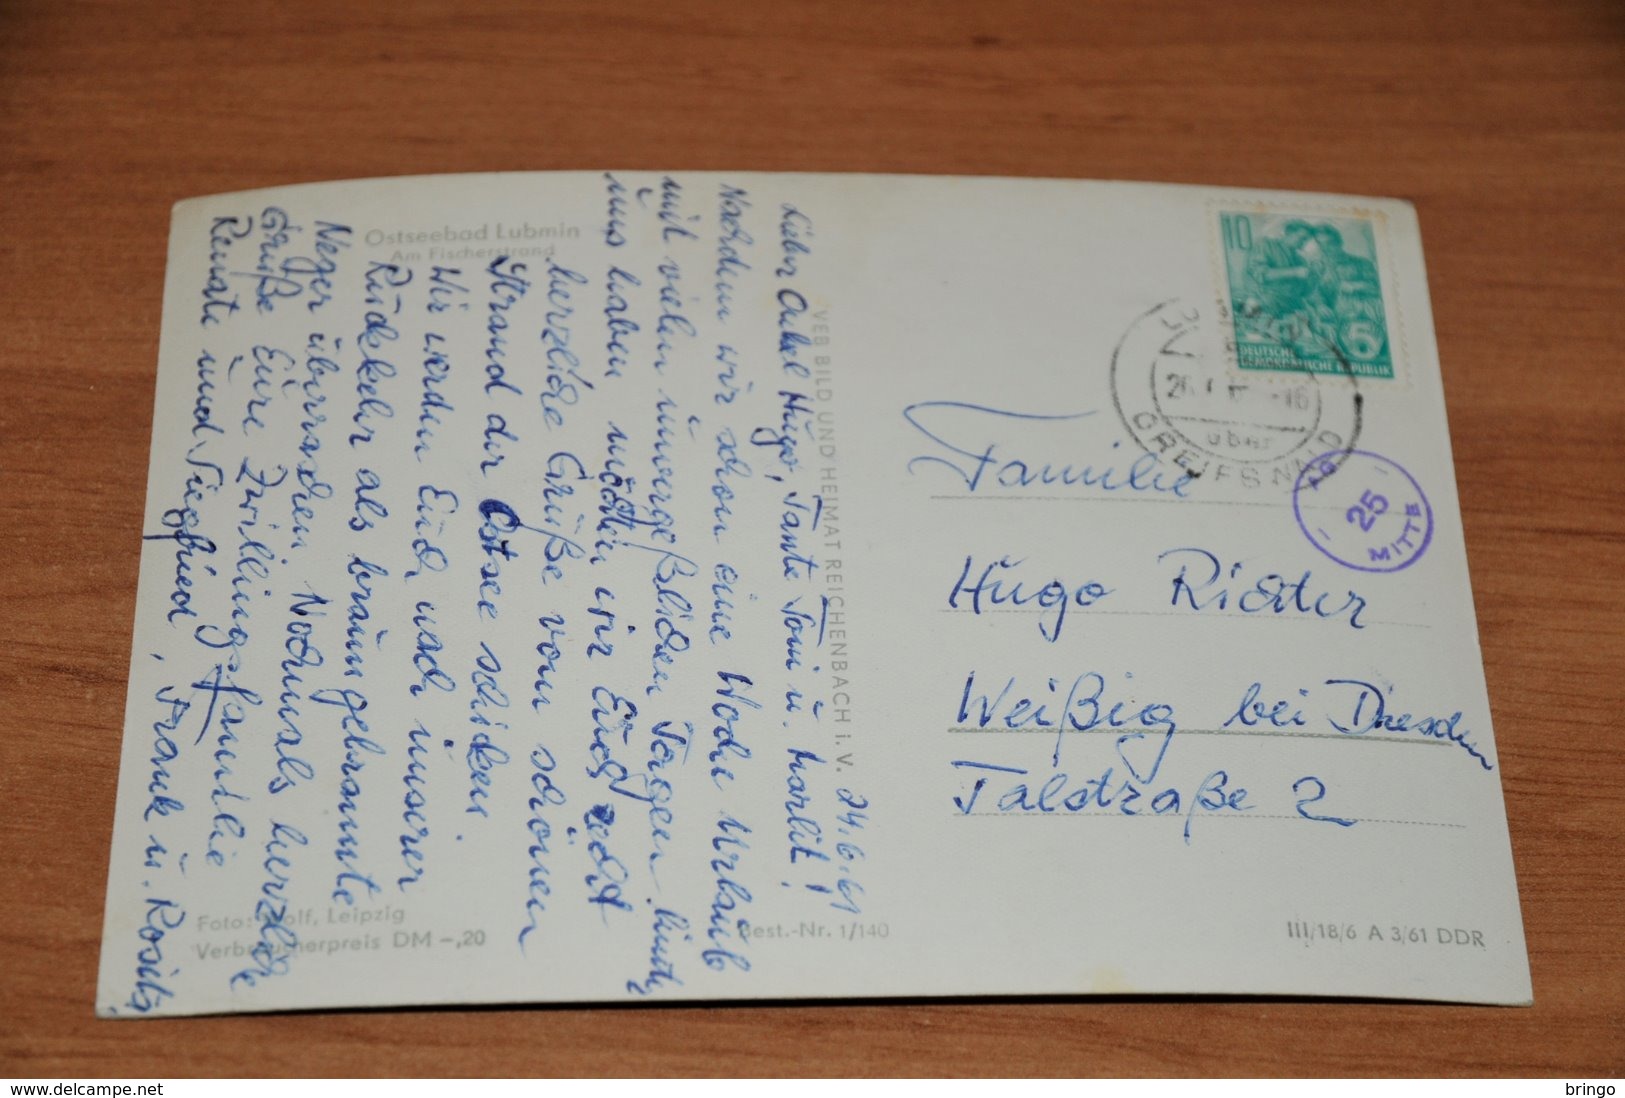 Ostseebad Lubmin
Am Fischerstrand
24.6.61
Lieber Onkel Hugo, Tante Toni u. Marlit!
Nachdem wir schon eine Woche Urlaub
mit vielen unvergeßlichen Tagen hinter
uns haben möchten wir Euch recht
herzliche Grüße vom schönen
Strand der Ostsee schicken.
Wir werden Euch nach unserer
Rückkehr als braungebrannte
Neger überraschen. Nochmals herzliche
Grüße Eure Zwillingsfamilie
Renate und Siegfried, Frank u. Rosita
Foto: Wolf, Leipzig
Verbraucherpreis DM -,20
VEB BILD UND HEIMAT REICHENBACH i. V.
Best.-Nr. 1/140
10
5
DEUTSCHE
DEMOKRATISCHE REPUBLIK
-16
über
GREIFSWALD
25
MITTE
Familie
Hugo Richter
Weißig bei Dresden
Talstraße 2
III/18/6 A 3/61 DDR
bringo